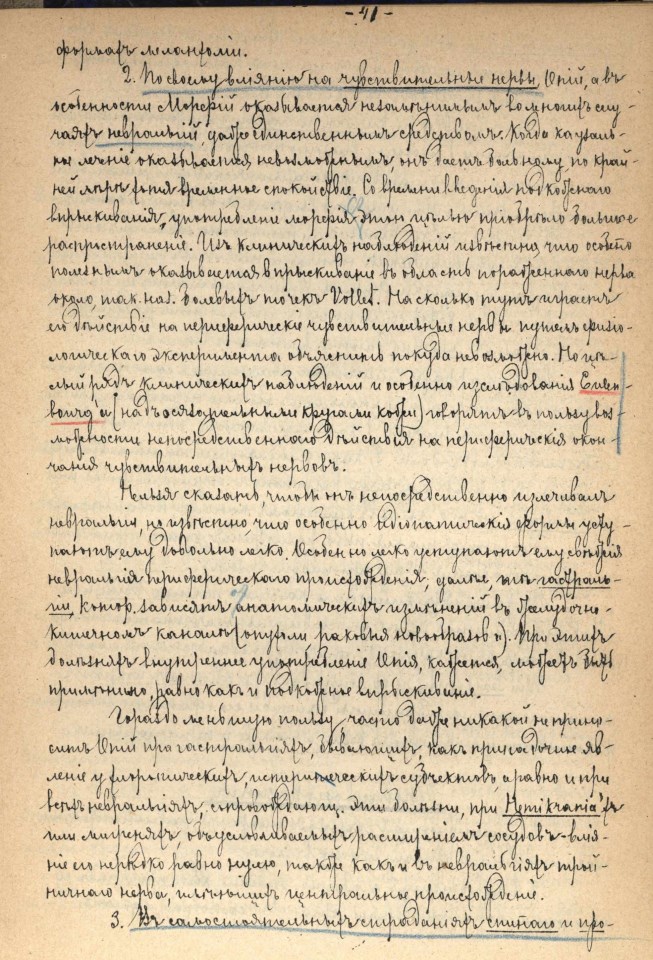 - 41 -
формахъ меланхоліи.
2. По своему вліянію на чувствительные нервы, Опій, а въ
особенности Морфій оказывается незамѣнимымъ во многихъ слу-
чаяхъ невралгій, даже единственнымъ средствомъ. Когда каузаль-
ное леченіе оказывается невозможнымъ, онъ даетъ больному, по край-
ней мѣрѣ хотя временное спокойствіе. Со времени введенія подкожнаго
впрыскиванія, употребленіе морфія этою цѣлью пріобрѣло большое
распространеніе. Изъ клиническихъ наблюденій извѣстно, что особенно
полезнымъ оказывается впрыскиваніе въ область пораженнаго нерва
около, так. наз. болевыхъ точекъ Volleé. На сколько тутъ играетъ
его дѣйствіе на периферическіе чувствительные нервы путемъ физіо-
логическаго эксперимента объяснить покуда невозможно. Но цѣ-
лый рядъ клиническихъ наблюденій и особенно изслѣдованія Eulen-
bourg'a (надъ осязательными кругами кожи) говорятъ въ пользу воз-
можности непосредственнаго дѣйствія на периферическія окон-
чанія чувствительныхъ нервовъ.
Нельзя сказать, чтобы онъ непосредственно излечивалъ
невралгіи, но извѣстно, что особенно идіопатическія формы усту-
паютъ ему довольно легко. Особенно легко уступаютъ ему свѣжія
невралгіи периферическаго происхожденія, далѣе, тѣ гастраль-
гіи, котор. зависятъ анатомическихъ измѣненій въ желудочно-
кишечномъ каналѣ (опухоли раковыя новообразов.). При этихъ
болѣзняхъ внутреннее употребленіе Опія, кажется, можетъ быть
примѣнимо, равно какъ и подкожное впрыскиваніе.
Гораздо меньшую пользу, часто даже никакой не прино-
ситъ Опій при гастралгіяхъ, бывающихъ, какъ припадочное яв-
леніе у хлоротическихъ, истерическихъ субъектовъ, а равно и при
всѣхъ невралгіяхъ, сопровождающ. эти болѣзни, при Hemikrania'хъ
или мигреняхъ, обусловливаемыхъ расширеніемъ сосудовъ - влія-
ніе его нерѣдко равно нулю, также какъ и въ невралгіяхъ трой-
ничнаго нерва, имѣющихъ центральное происхожденіе.
3. Въ самостоятельныхъ страданіяхъ спинаго и про-